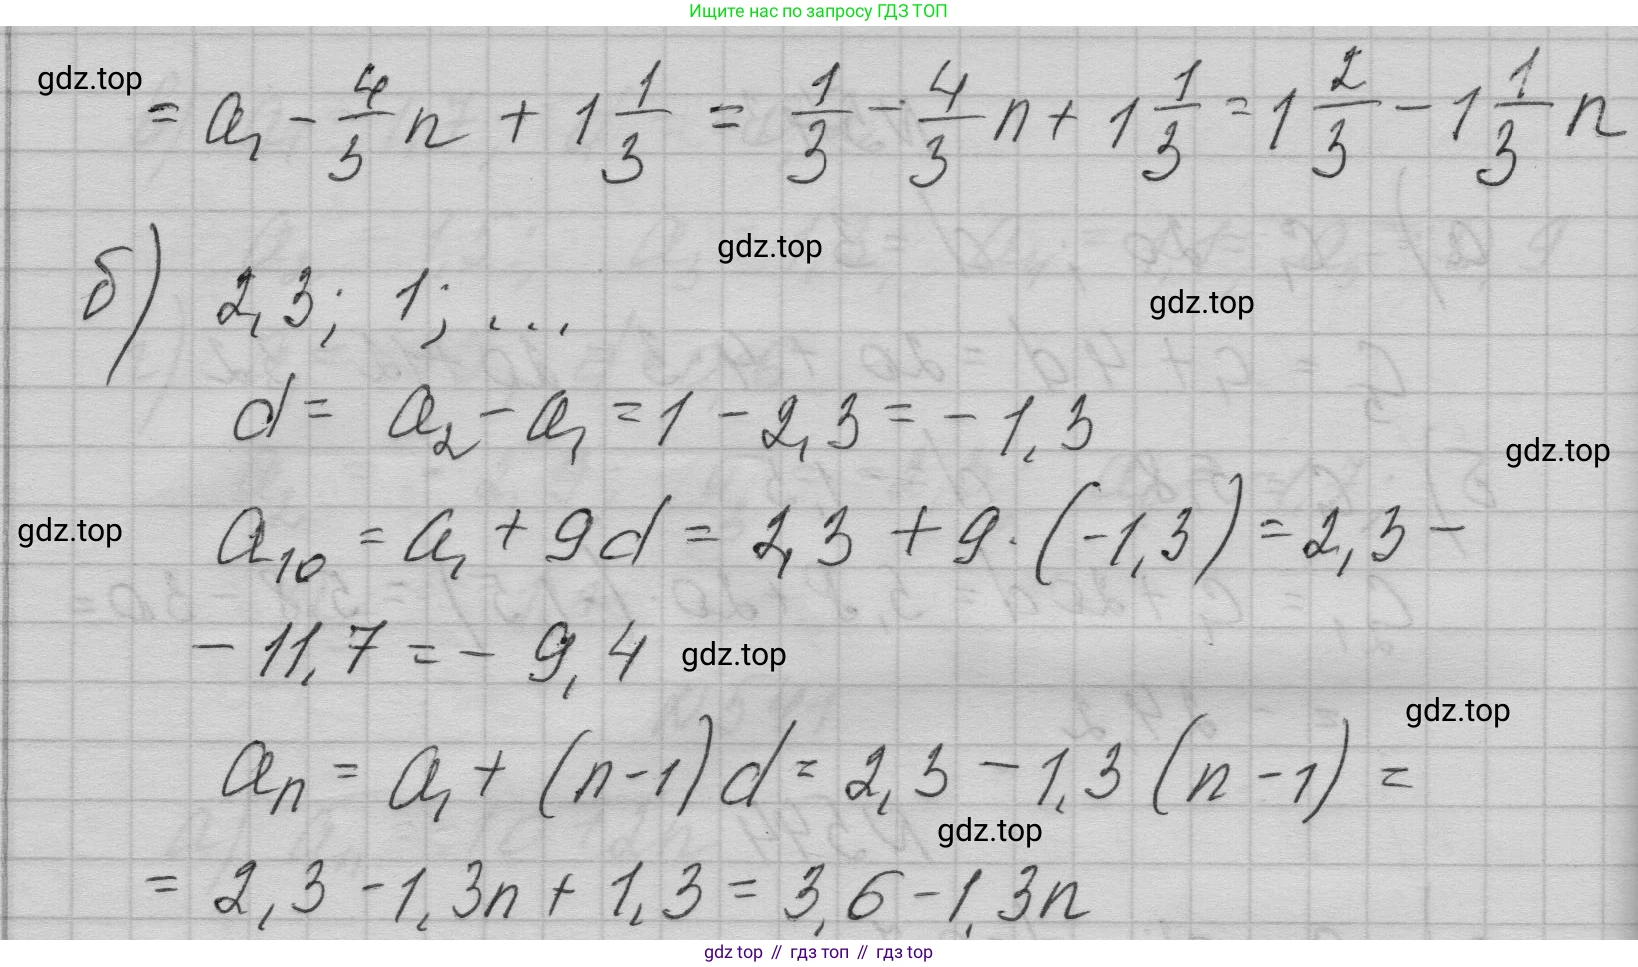 Ищите нас по запросу ГДЗ ТОП
gdz.top
= a₁ - 4/3 n + 1 1/3 = 1/3 - 4/3 n + 1 1/3 = 1 2/3 - 1 1/3 n
gdz.top
б) 2,3; 1; ...
gdz.top
d = a₂ - a₁ = 1 - 2,3 = -1,3
gdz.top
gdz.top
a₁₀ = a₁ + 9d = 2,3 + 9·(-1,3) = 2,3 -
- 11,7 = - 9,4
gdz.top
gdz.top
aₙ = a₁ + (n-1)d = 2,3 - 1,3(n-1) =
gdz.top
= 2,3 - 1,3n + 1,3 = 3,6 - 1,3n
gdz top // гдз топ // гдз top